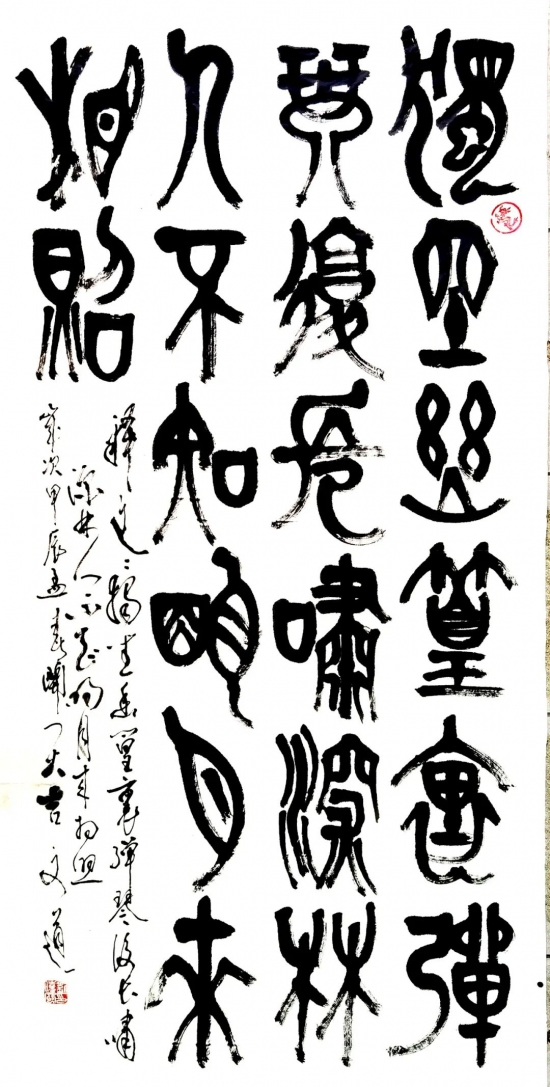 獨坐幽篁裏彈
琴復長嘯深林
人不知明月來
相照
釋文:獨坐幽篁裏彈琴復長嘯
深林人不知明月来相照
歲次甲辰孟春大吉文道